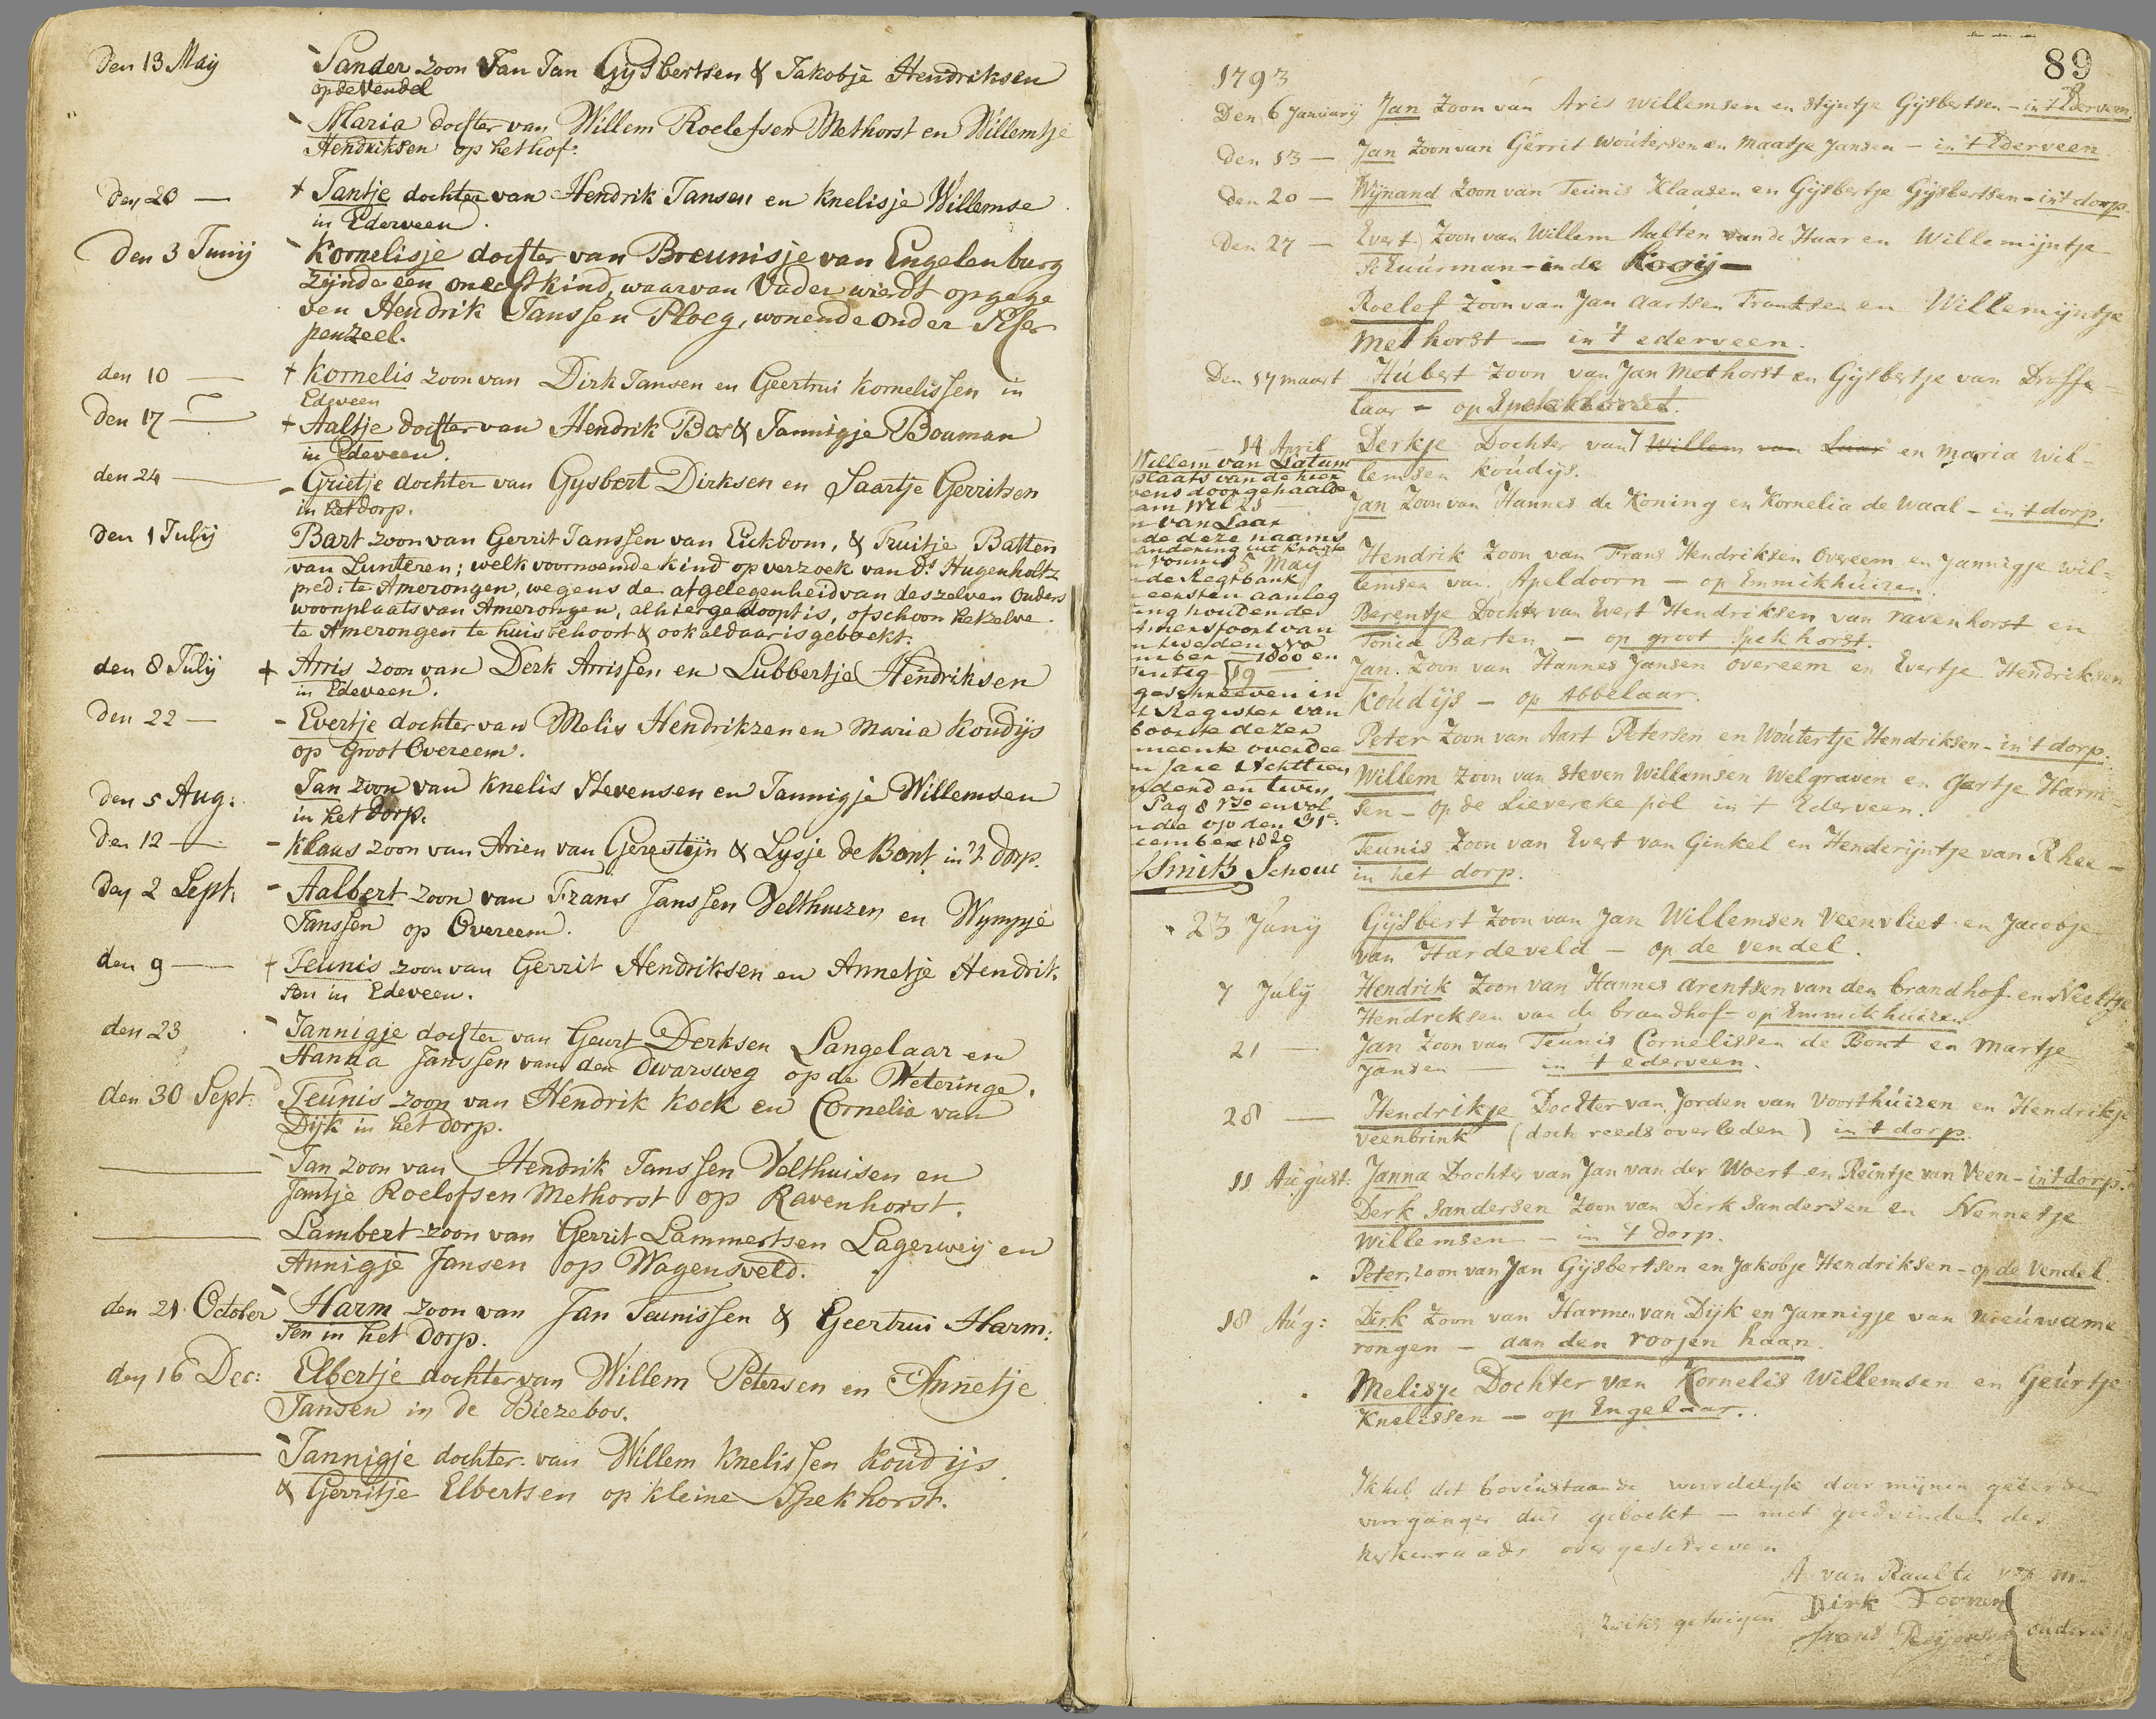 Den 13 Maij Sander zoon Van Jan Gijsbertsen & Jakobje Hendriksen
op de Vendel
Maria dochter van Willem Roelefsen Methorst en Willemtje
Hendriksen op het hof.
Den 20 — + Jantje dochter van Hendrik Jansen en Knelisje Willemse
in Ederveen.
Den 3 Junij Kornelisje dochter van Breunisje van Engelenburg
zijnde een onecht kind, waarvan Vader wierdt opgege
ven Hendrik Janssen Ploeg, wonende onder
penzeel.
den 10 — + Kornelis zoon van Dirk Jansen en Geertrui Kornelissen in
Edeveen
Den 17 — + Aaltje dochter van Hendrik Bos & Jannigje Bouman
in Edeveen.
den 24 — Grietje dochter van Gysbert Dirksen en Saartje Gerritsen
in het dorp.
Den 1 Julij Bart zoon van Gerrit Janssen van Eickdom, & Truitje Batten
van Lunteren; welk voornoemde kind op verzoek van Ds. Hugenholtz
pred: te Amerongen, wegens de afgelegenheid van deszelven ouders
woonplaats van Amerongen, alhier gedoopt is, ofschoon hetzelve
te Amerongen te huis behoort & ook aldaar is geboekt.
den 8 Julij + Arris zoon van Derk Arrissen en Lubbertje Hendriksen
in Edeveen.
Den 22 — - Evertje dochter van Melis Hendrikzen en Maria Koudijs
op Groot Overeem.
Den 5 Aug: Jan zoon van Knelis Stevensen en Jannigje Willemsen
in het dorp.
Den 12 — - Klaas zoon van Arien van Gerestijn & Lysje de Bont in 't dorp.
Den 2 Sept. - Aalbert zoon van Frans Janssen Velthuizen en Wympje
Janssen op Overeem.
den 9 — + Teunis zoon van Gerrit Hendriksen en Annetje Hendrik.
sen in Edeveen.
den 23 Jannigje dochter van Geurt Derksen Langelaar en
Hanna Janssen van den Dwarsweg op de Weteringe.
den 30 Sept. Teunis zoon van Hendrik Kock en Cornelia van
Dijk in het dorp.
— Jan zoon van Hendrik Janssen Velthuisen en
Jantje Roelofsen Methorst op Ravenhorst.
— Lambert zoon van Gerrit Lammertsen Lagerweij en
Annigje Jansen op Wagensveld.
den 21 October Harm zoon van Jan Teunissen & Geertrui Harm:
sen in het dorp.
den 16 Dec: Elbertje dochter van Willem Petersen en Annetje
Jansen in de Biezebos.
— Jannigje dochter van Willem Knelissen Koudijs
& Gerritje Elbertsen op kleine Spekhorst.
89
1793
Den 6 Januarij Jan Zoon van Aris Willemsen en Stijntje Gijsbertsen - in 't Ederveen.
Den 13 — Jan Zoon van Gerrit Woutersen en Maatje Jansen — in 't Ederveen.
Den 20 — Wijnand Zoon van Teunis Klaasen en Gijsbertje Gijsbertsen - in 't dorp.
Den 27 — Evert Zoon van Willem Aalten van de Haar en Willemijntje
Schuurman - in de Kooij —
Roelof Zoon van Jan Aartsen Frantsen en Willemijntje
Methorst — in 't ederveen.
Den 17 maart Hubert Zoon van Jan Methorst en Gijsbertje van Drosse=
laar - op Spekhorst.
14 April Derkje Dochter van Willem van Laar en Maria Wil=
lemsen Koudijs.
Willem van Latum
plaats van de hier
vens doorgehaalde
am Wil
n van Laar
de deze naams
andering uit kragte
n vonnis 5 May
n de Regtbank
eersten aanleg
ing houdende
Amersfoort van
n tweeden
mber 1800 en
intig
geschreeven in
't Register van
boorte dezer
meente over dee
n Jare Achttien
ndend en twen
Pag 8 vso en vol
nde op den 31e
cember 1820
Smits Schout
Jan Zoon van Hannes de Koning en Kornelia de Waal - in 't dorp.
Hendrik Zoon van Frans Hendriksen Overeem en Jannigje Wil=
lemsen van Apeldoorn — op Emmikhuizen.
Berentje Dochter van Evert Hendriksen van ravenhorst en
Tonia Barten — op groot Spekhorst.
Jan Zoon van Hannes Jansen Overeem en Evertje Hendriksen
Koudijs - op Abbelaar.
Peter Zoon van Aart Petersen en Woutertje Hendriksen - in 't dorp.
Willem Zoon van Steven Willemsen Welgraven en Gertje Harm=
sen - op de Lievereke pol in 't Ederveen.
Teunis Zoon van Evert van Ginkel en Henderijntje van Rhee —
in het dorp.
23 Junij Gijsbert Zoon van Jan Willemsen Veenvliet en Jacobje
van Hardeveld — op de Vendel.
7 Julij Hendrik Zoon van Hannes Arentsen van den brandhof en Neeltje
Hendriksen van de brandhof - op Emmikhuizen
21 — Jan Zoon van Teunis Cornelissen de Bont en Martje
Jansen — in 't ederveen.
28 — Hendrikje Dochter van Jorden van Voorthuizen en Hendrikje
Veenbrink (doch reeds overleden) in 't dorp.
11 August: Janna Dochter van Jan van der Woert en Reintje van Veen - in 't dorp.
Derk Sandersen Zoon van Derk Sandersen en Nennetje
Willemsen — in 't dorp.
Peter zoon van Jan Gijsbertsen en Jakobje Hendriksen - op de Vendel
18 Aug: Dirk Zoon van Harmen van Dijk en Jannigje van Nieuwame=
rongen - aan den roojen haan.
Melisje Dochter van Kornelis Willemsen en Geurtje
Knelissen — op Engelaar.
Ik heb dit bovenstaande woordelyk door mynen
voorganger dus geboekt — met goedvinden des
kerkenraads overgeschreven
A. van Raalte
Dirk Toonen
getuigen Frans Reijersen ouder